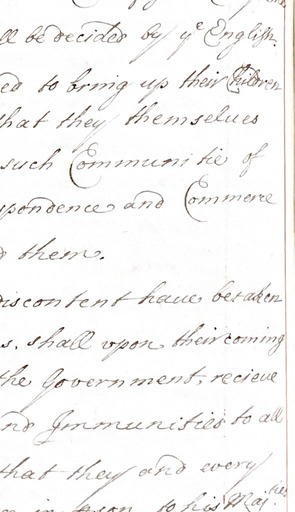 ll be decided by yᵉ English
ed to bring up their Children
that they themselues
such Communitie of
spondence and Commerce
them.
discontent haue betaken
s, shall upon their coming
the Gouernment, recieue
nd Immunities to all
that they and every
to his Maj.ties